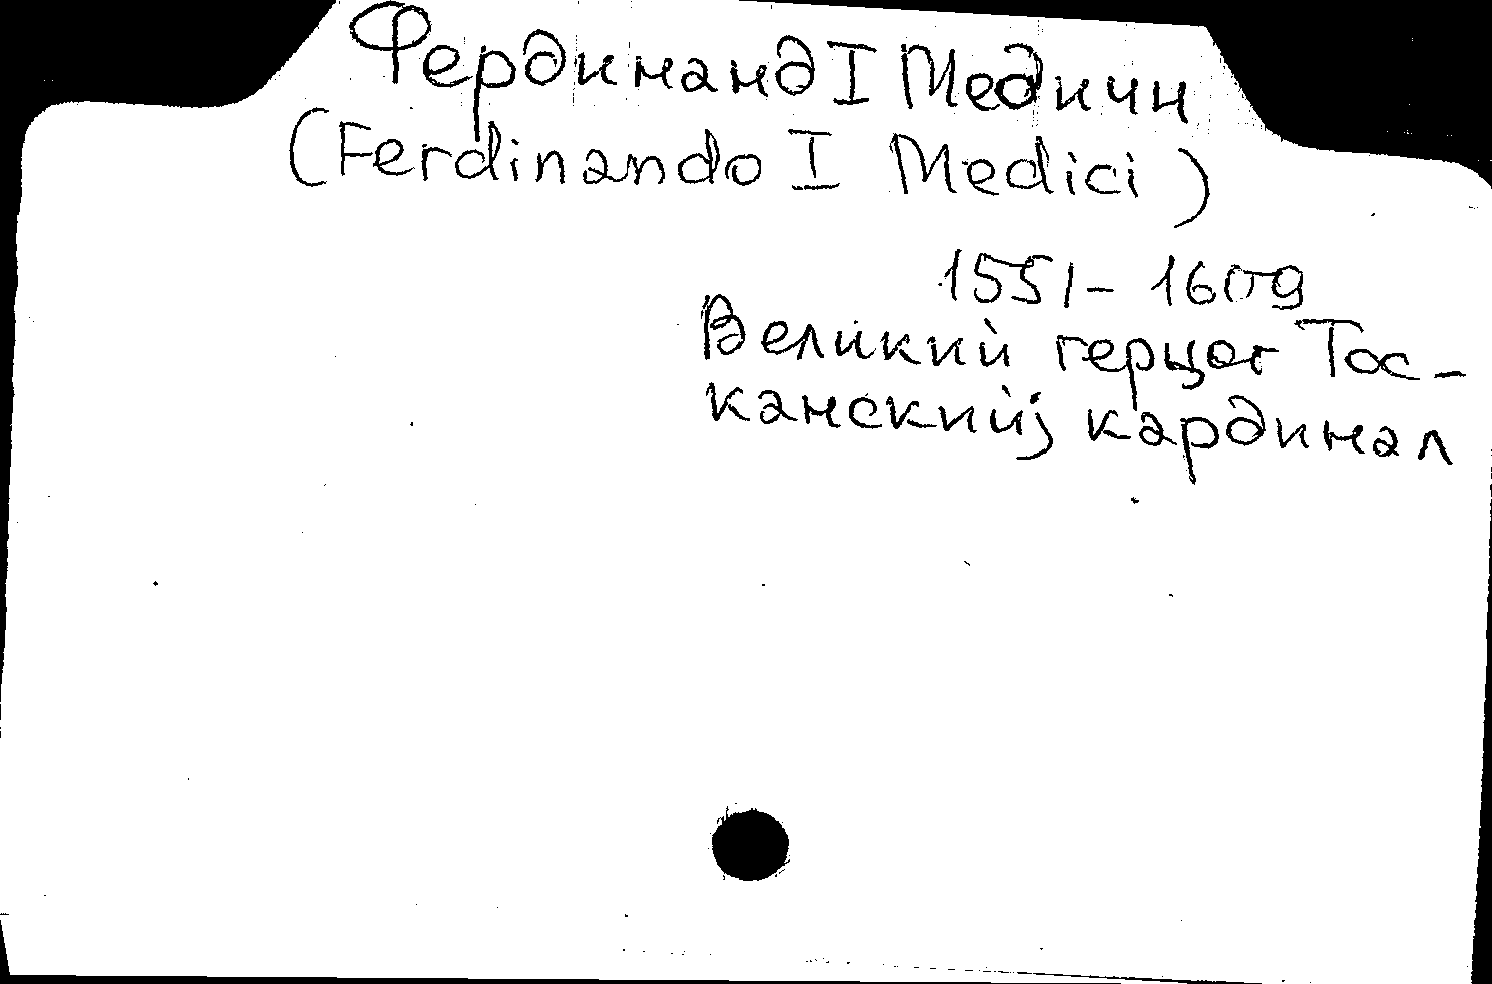 Фердинанд I Медичи
(Ferdinando I Medici)
1551 - 1609
Великий герцог Тос-
канский; кардинал